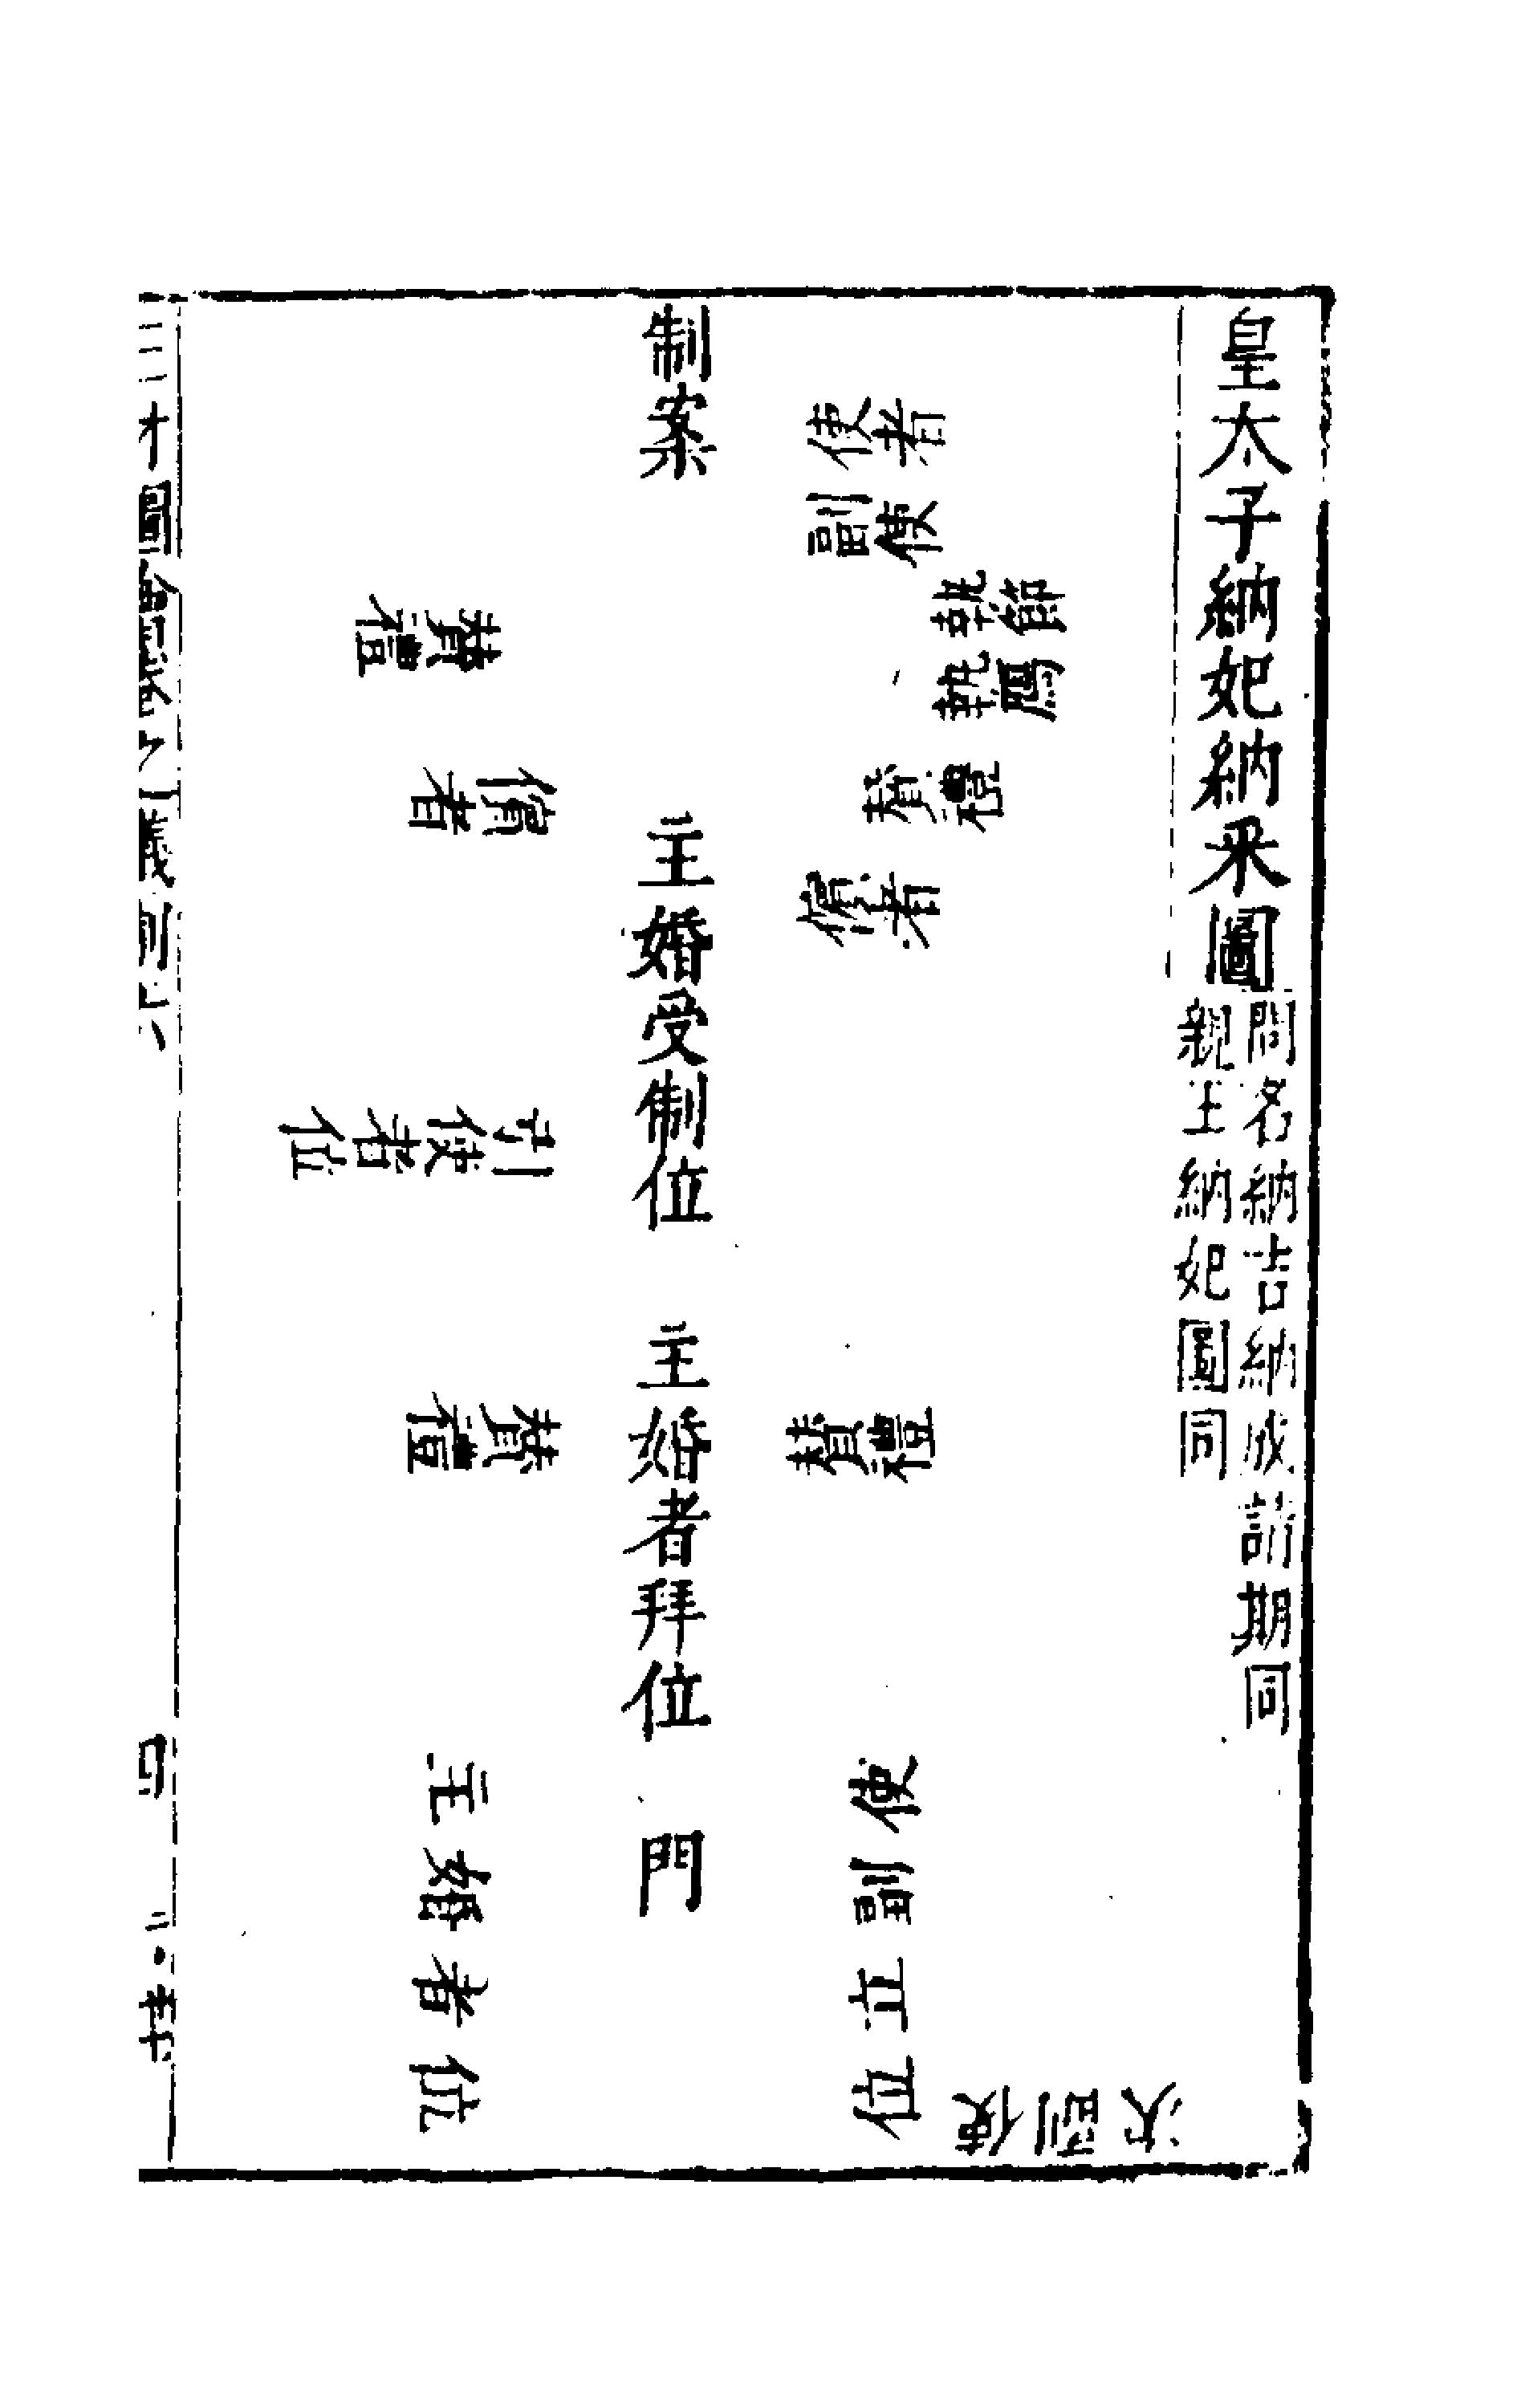 皇太子納妃納采圖
問名納吉納成請期同
親王納妃圖同
使者
副使
執節
執鴈
贊禮
儐者
贊禮
使副立位
次副使
制案
主婚受制位
主婚者拜位
門
贊禮
儐者
引使者位
贊禮
主婚者位